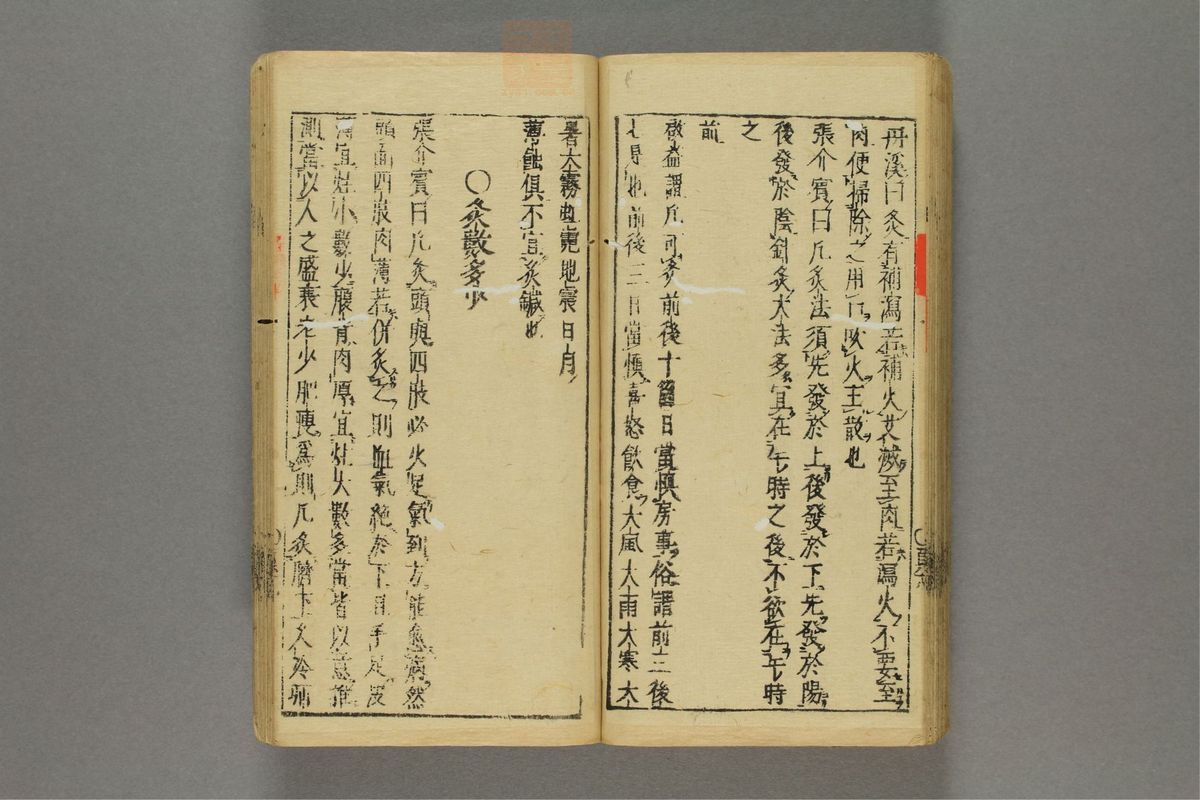 丹溪曰灸有補瀉若補火艾滅至肉若瀉火不要至
肉便掃除之用口吹火主散也
張介賓曰凡灸法須先發於上後發於下先發於陽
後發於陰針灸大法多宜在午時之後不欲在午時
之
前
啟益謂凡可灸前後十箇日當慎房事俗謂前三後
七是也前後三日當慎喜怒飲食大風大雨大寒大
暑大霧虹霓地震日月
薄蝕俱不宜灸鍼也
○灸數多少
張介賓曰凡灸頭與四肢必火足氣到方能愈病然
頭面四肢肉薄若併灸之則血氣絶於下且手足皮
薄宜炷小數少腹背肉厚宜炷大數多當皆以意推
測當以人之盛衰老少肥瘦爲則凡灸臍下久冷